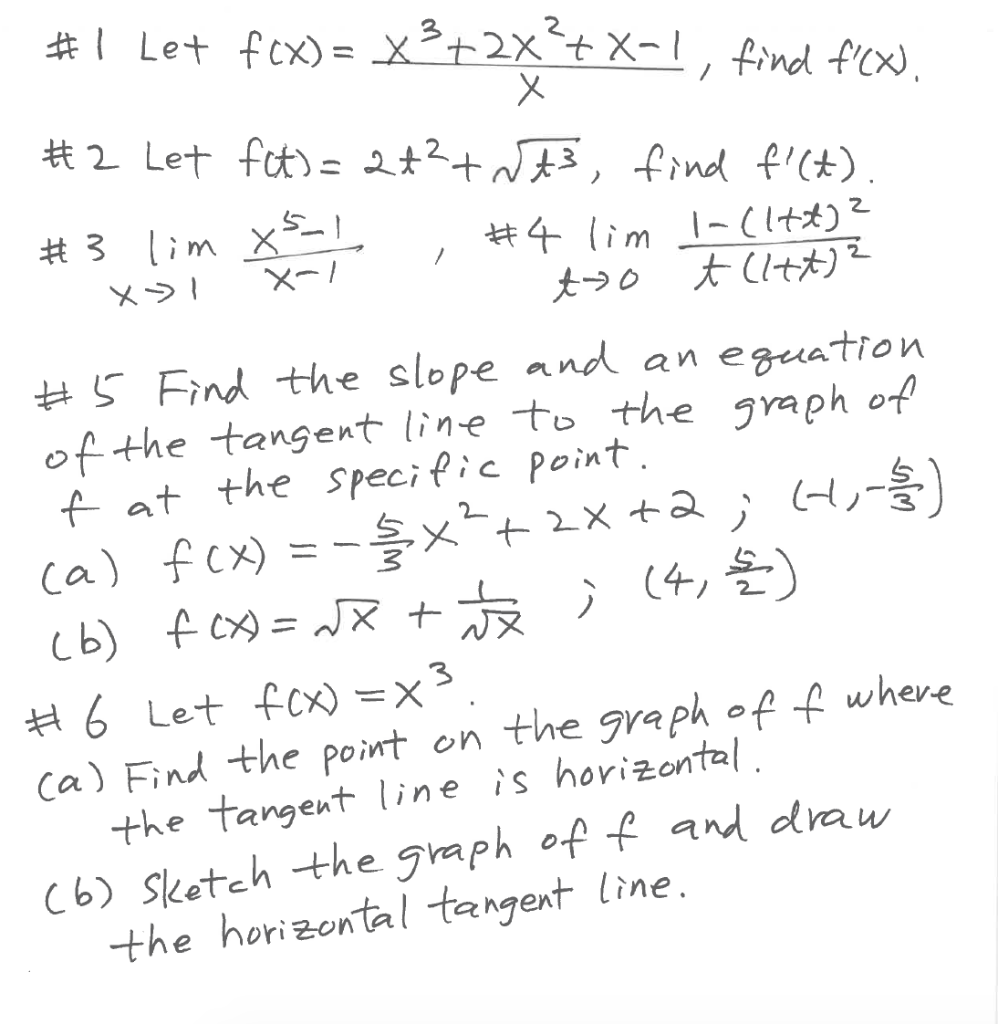 #1 Let f(x) = (x³+2x²+x-1)/x, find f'(x).
#2 Let f(t) = 2t²+√t³, find f'(t).
#3 lim x→1 (x⁵-1)/(x-1) , #4 lim t→0 (1-(1+t)²)/(t(1+t)²)
#5 Find the slope and an equation
of the tangent line to the graph of
f at the specific point.
(a) f(x) = -5/3 x² + 2x + 2 ; (-1, -5/3)
(b) f(x) = √x + 1/√x ; (4, 5/2)
#6 Let f(x) = x³.
(a) Find the point on the graph of f where
the tangent line is horizontal.
(b) Sketch the graph of f and draw
the horizontal tangent line.